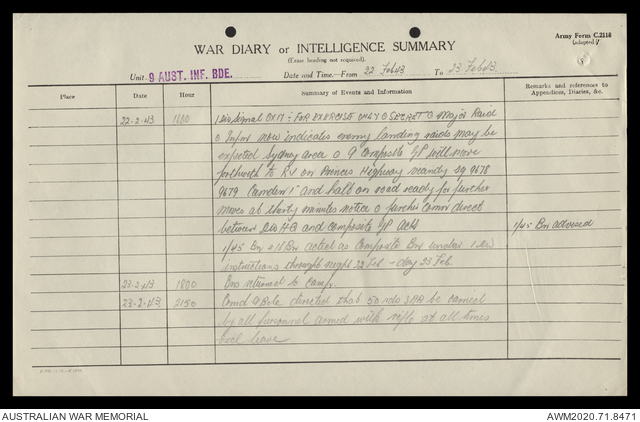 Army Form C.2118
(adapted)
WAR DIARY or INTELLIGENCE SUMMARY
(Erase heading not required).
Unit 9 AUST. INF. BDE. Date and Time—From 22 Feb 43 To 23 Feb 43.
Place Date Hour Summary of Events and Information Remarks and references to Appendices, Diaries, &c.
22-2-43 1600 1 Div Signal : FOR EXERCISE ONLY O SECRET O Major Raid
O Infm now indicates enemy landing raids may be
expected Sydney area O 9 Composite GP will move
forthwith to RV on Princes Highway vicinity sq 9678
9679 Camden 1" and halt on road ready for further
moves at thirty minutes notice O further comn direct
between Div HQ and composite GP
1/45 Bn advised
1/45 Bn acted as Composite Bn under 1 Div
instructions throughout night 22 Feb - day 23 Feb.
23-2-43 1800 Bns returned to camp.
23-2-43 2150 Comd 9 Bde directed that 50 rds SAA be carried
by all personnel armed with rifle at all times
leave
AUSTRALIAN WAR MEMORIAL AWM2020.71.8471